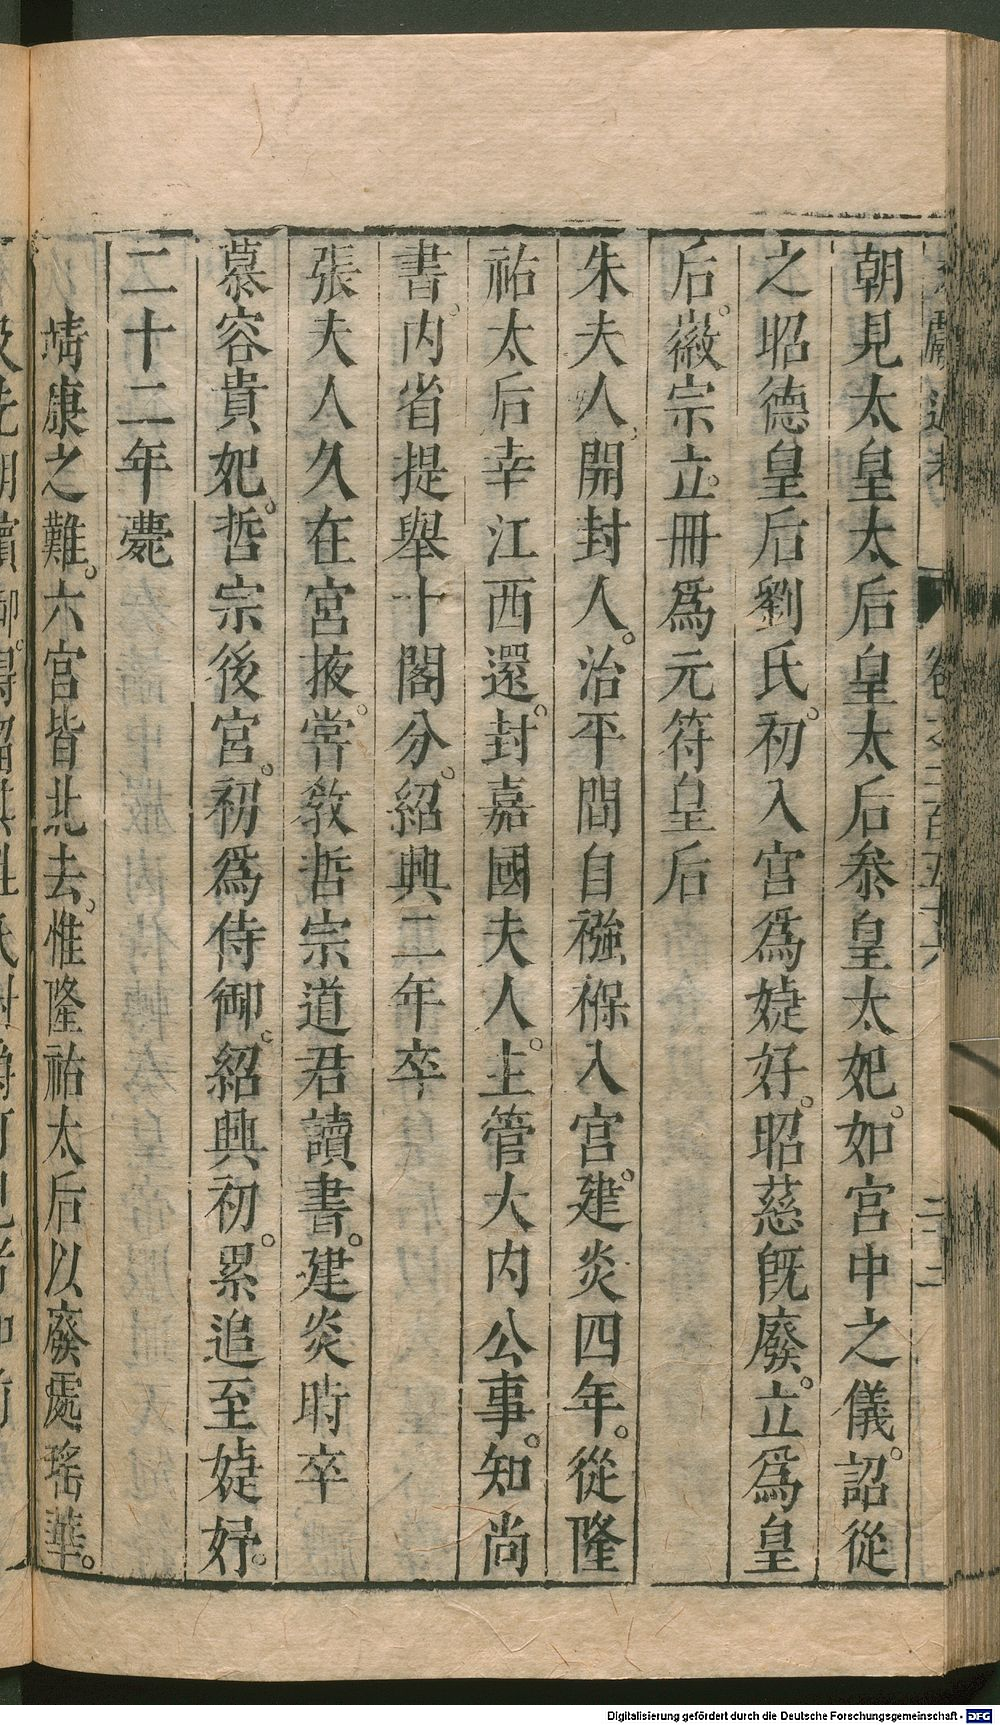 朝見太皇太后皇太后叅皇太妃。如宮中之儀。詔從
之昭德皇后劉氏。初入宮爲婕妤。昭慈旣廢。立爲皇
后。徽宗立。冊爲元符皇后
朱夫人。開封人。治平間自襁褓入宮。建炎四年。從隆
祐太后幸江西還。封嘉國夫人。主管大内公事。知尚
書。内省提舉十閣分。紹興二年卒
張夫人久在宮掖。嘗教哲宗道君讀書。建炎時卒
慕容貴妃。哲宗後宮。初爲侍御。紹興初。累追至婕妤。
二十二年薨
靖康之難。六宮皆北去。惟隆祐太后以廢處瑤華。
Digitalisierung gefördert durch die Deutsche Forschungsgemeinschaft - DFG